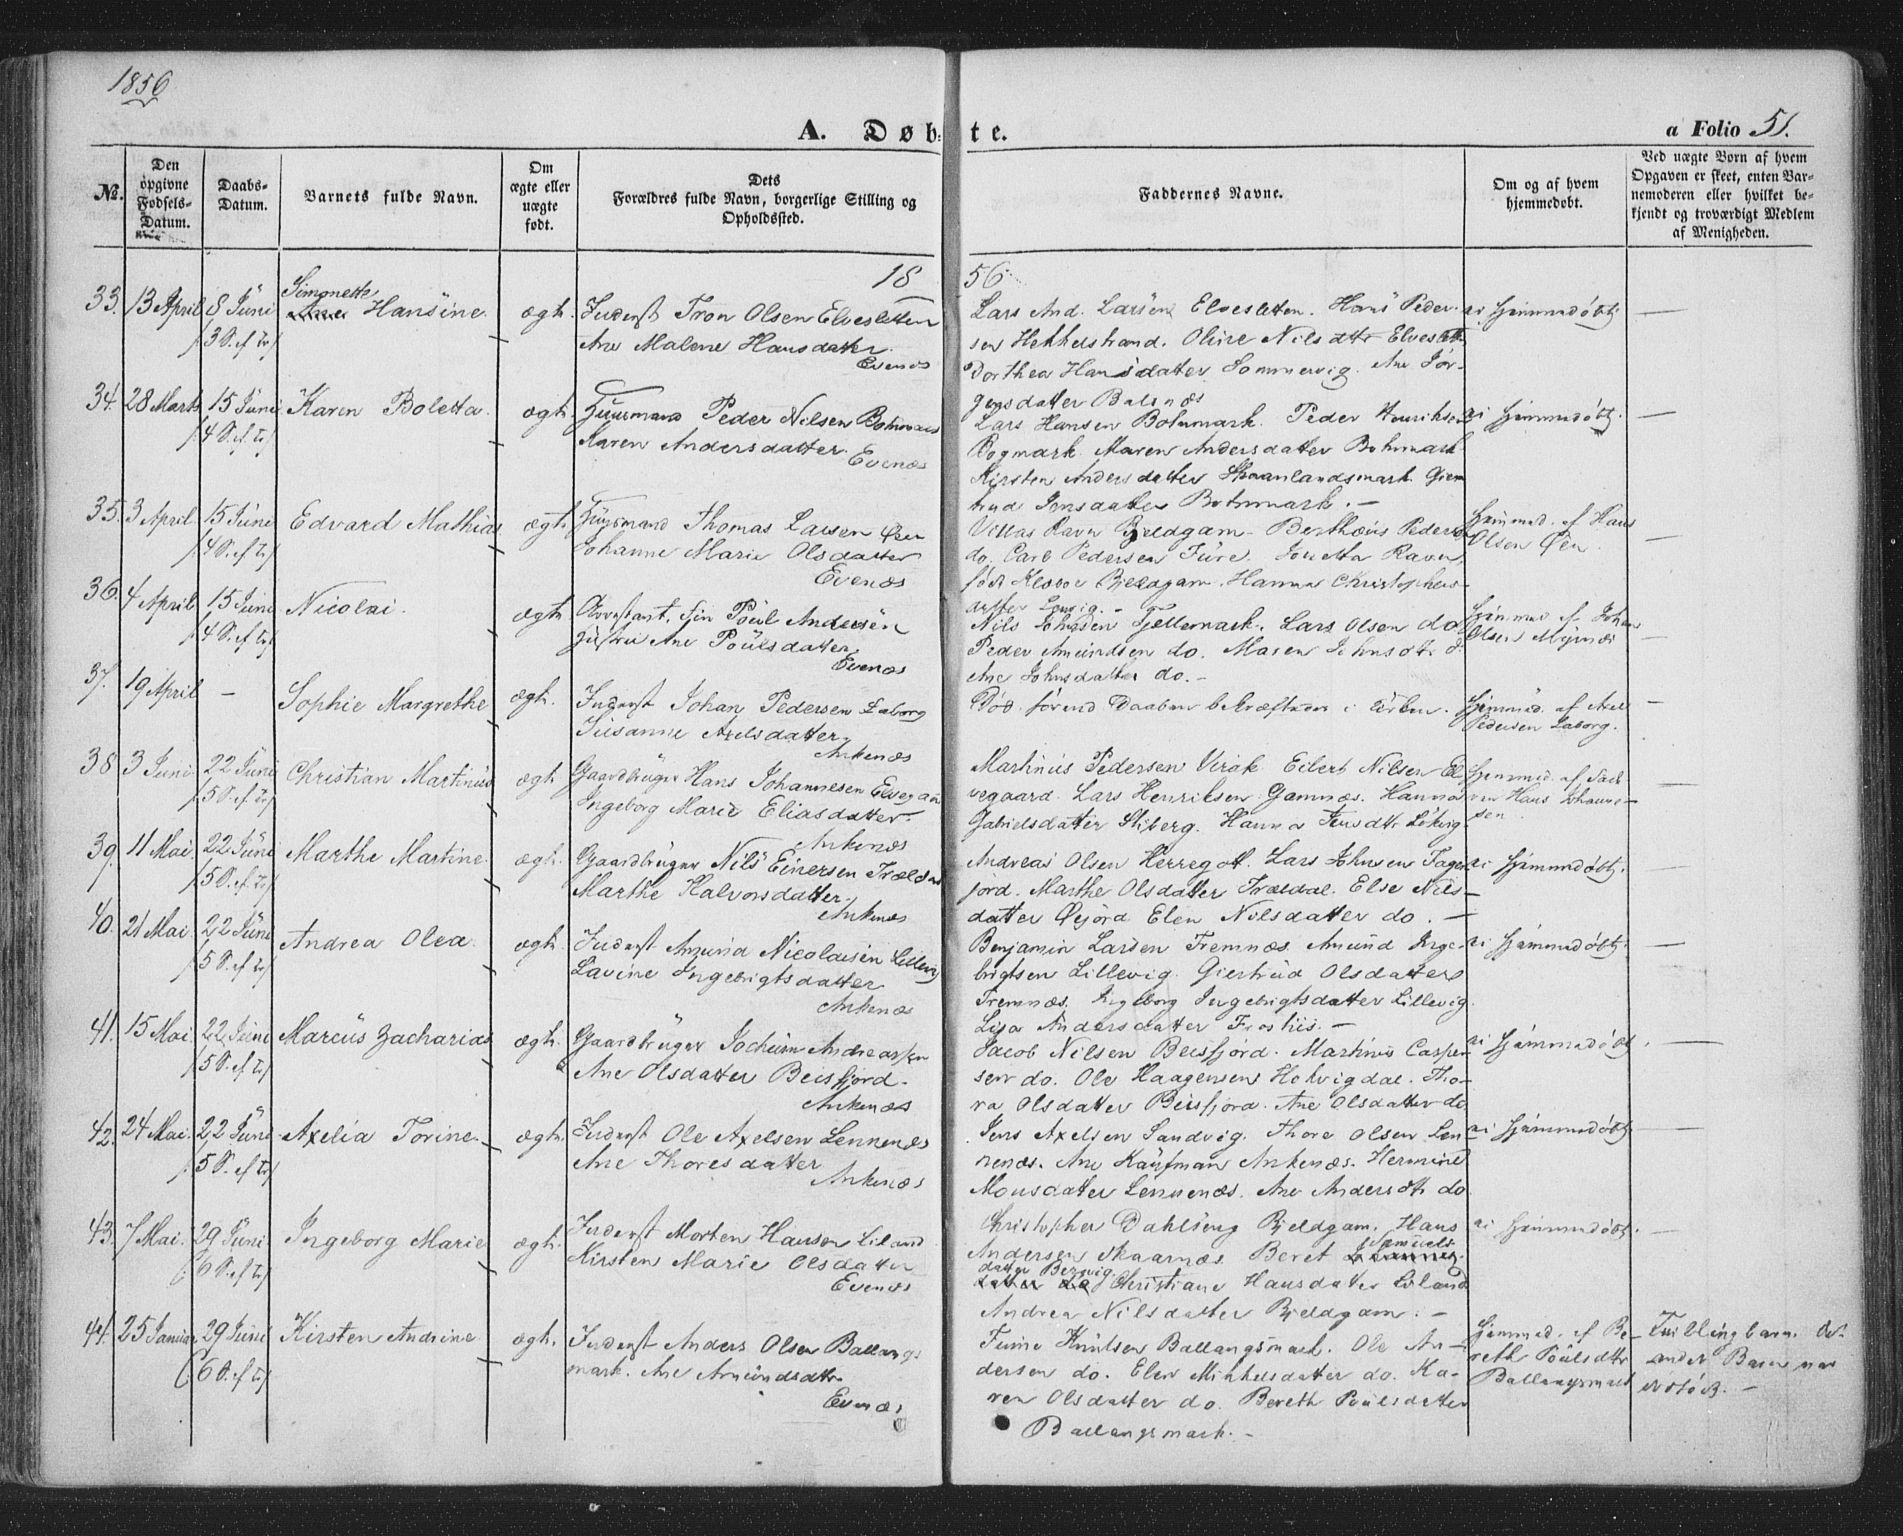 1856
A. Døb-
te.
a Folio 51.
No.
Den opgivne Fødsels-Datum.
Daabs-Datum.
Barnets fulde Navn.
Om ægte eller uægte født.
Dets Forældres fulde Navn, borgerlige Stilling og Opholdssted.
Faddernes Navne.
Om og af hvem hjemmedøbt.
Ved uægte Børn af hvem Opgaven er skeet, enten Barnemoderen eller hvilket bekjendt og troværdigt Medlem af Menigheden.
18 56
33. 13 April 8 Juni Simonette Hansine ægt. Inderst Tron Olsen Elvesletten
3 S. ef Tr. Ane Malene Hansdatter
Evenæs
Lars And. Larsen Elvesletten. Hans Peder-
sen Hekkelstrand. Oline Nilsdttr Elveslett
Dorthea Hansdatter Sommervig. Ane Jør-
gensdatter Balsnæs
ei hjemmedøbt. —
34. 28 Marts 15 Juni Karen Boletta ægt. Huusmand Peder Nilsen Botnmark
4 S. ef Tr. Karen Andersdatter
Evenæs
Lars Hansen Botnmark. Peder Henriksen
Bogmark. Maren Andersdatter Botnmark
Kirsten Andersdatter Skaanlandsmark. Gjer-
trud Jensdatter Botnmark. —
ei hjemmedøbt. —
35. 3 April 15 Juni Edvard Mathias ægt. Huusmand Thomas Larsen Øen
4 S. ef Tr. Johanne Marie Olsdatter
Evenæs
Villas Ravn Bjeldgam. Berthæus Peders.
do. Carl Pedersen Fure. Ravn,
født Klæboe Bjeldgam. Hanna Christophers-
datter
hjemmed. af Hans
Olsen Øen. —
36. 4 April 15 Juni Nicolai. ægt. Poul Andersen
4 S. ef Tr. Ane Poulsdatter
Evenæs
Nils Johnsen Fjellemark. Lars Olsen do
Peder Amundsen do. Maren Johnsdtr d.
Ane Johnsdatter do. —
hjemmed af Johan
Olsen Myrnæs —
37. 19 April — Sophie Margrethe ægt. Inderst Johan Pedersen Laborg
Susanne Axelsdatter
Ankenæs
Død førend Daaben bekræftedes i Kirken.
hjemmed. af Axel
Pedersen Laborg. —
38 3 Juni 22 Juni Christian Martinus ægt. Gaardbruger Hans Johannesen Elvegaard
5 S. ef Tr. Ingeborg Marie Eliasdatter
Ankenæs
Martinus Pedersen Virak Eilert Nilsen El-
vegaard. Lars Henriksen Gamnæs. Hanna
Gabrielsdatter Stiberg. Hanna Jensdtr
hjemmed. af Fad-
ren Hans Johanne-
sen. —
39. 11 Mai 22 Juni Marthe Martine ægt. Gaardbruger Nils Einersen Træld
5 S. ef Tr. Marthe Halvorsdatter
Ankenæs
Andreas Olsen Herregott. Lars Johnsen Fager-
jord. Marthe Olsdatter Trældal. Else Nils-
datter Øijord Elen Nilsdatter do. —
ei hjemmedøbt. —
40. 21 Mai 22 Juni Andrea Olea ægt. Inderst Amund Nicolaisen Lillevig
5 S. ef Tr. Lavine Ingebrigtsdatter
Ankenæs
Benjamin Larsen Fremnæs. Amund Inge-
brigtsen Lillevig. Giertrud Olsdatter
Fremnæs. Ingeborg Ingebrigtsdatter Lillevig
Lisa Andersdatter —
ei hjemmedøbt. —
41. 15 Mai 22 Juni Marcus Zacharias ægt. Gaardbruger Jochum Andreassen
5 S. ef Tr. Ane Olsdatter Beisfjord.
Ankenæs
Jacob Nilsen Beisfjord. Martinus Casper-
sen do. Ole Haagensen Holvigdal. Tho-
ra Olsdatter Beisfjord. Ane Olsdatter do
ei hjemmedøbt. —
42. 24 Mai 22 Juni Axelia Torine ægt. Inderst Ole Axelsen Lennenæs
5 S. ef Tr. Ane Thoresdatter
Ankenæs
Jens Axelsen Sandvig. Thore Olsen Len-
nenæs. Ane Kaufman Ankenæs. Hermine
Monsdatter Lennenæs. Ane Andersdtr do
ei hjemmedøbt. —
43. 7 Mai 29 Juni Ingeborg Marie ægt. Inderst Morten Hansen Liland
6 S. ef Tr. Kirsten Marie Olsdatter
Evenæs
Christopher Dahlseng Bjeldgam. Hans
Andersen Skaarnæs. Beret Samuels-
datter Bervig Christiane Hansdatter Liland
Andrea Nilsdatter Bjeldgam. —
ei hjemmedøbt. —
44. 25 Januar 29 Juni Kirsten Andrine ægt. Inderst Anders Olsen Ballangs
6 S. ef Tr. mark. Ane Amundsdtr
Evenæs
Knutsen Ballangsmark. Ole An-
dersen do. Elen Mikkelsdatter do. Ka-
ren Olsdatter do. Bereth Poulsdatter
Ballangsmark. —
hjemmed. af Be-
reth Poulsdtr
Ballangsmark
Tvillingbarn. Det
andet Barn var
dødfødt. —